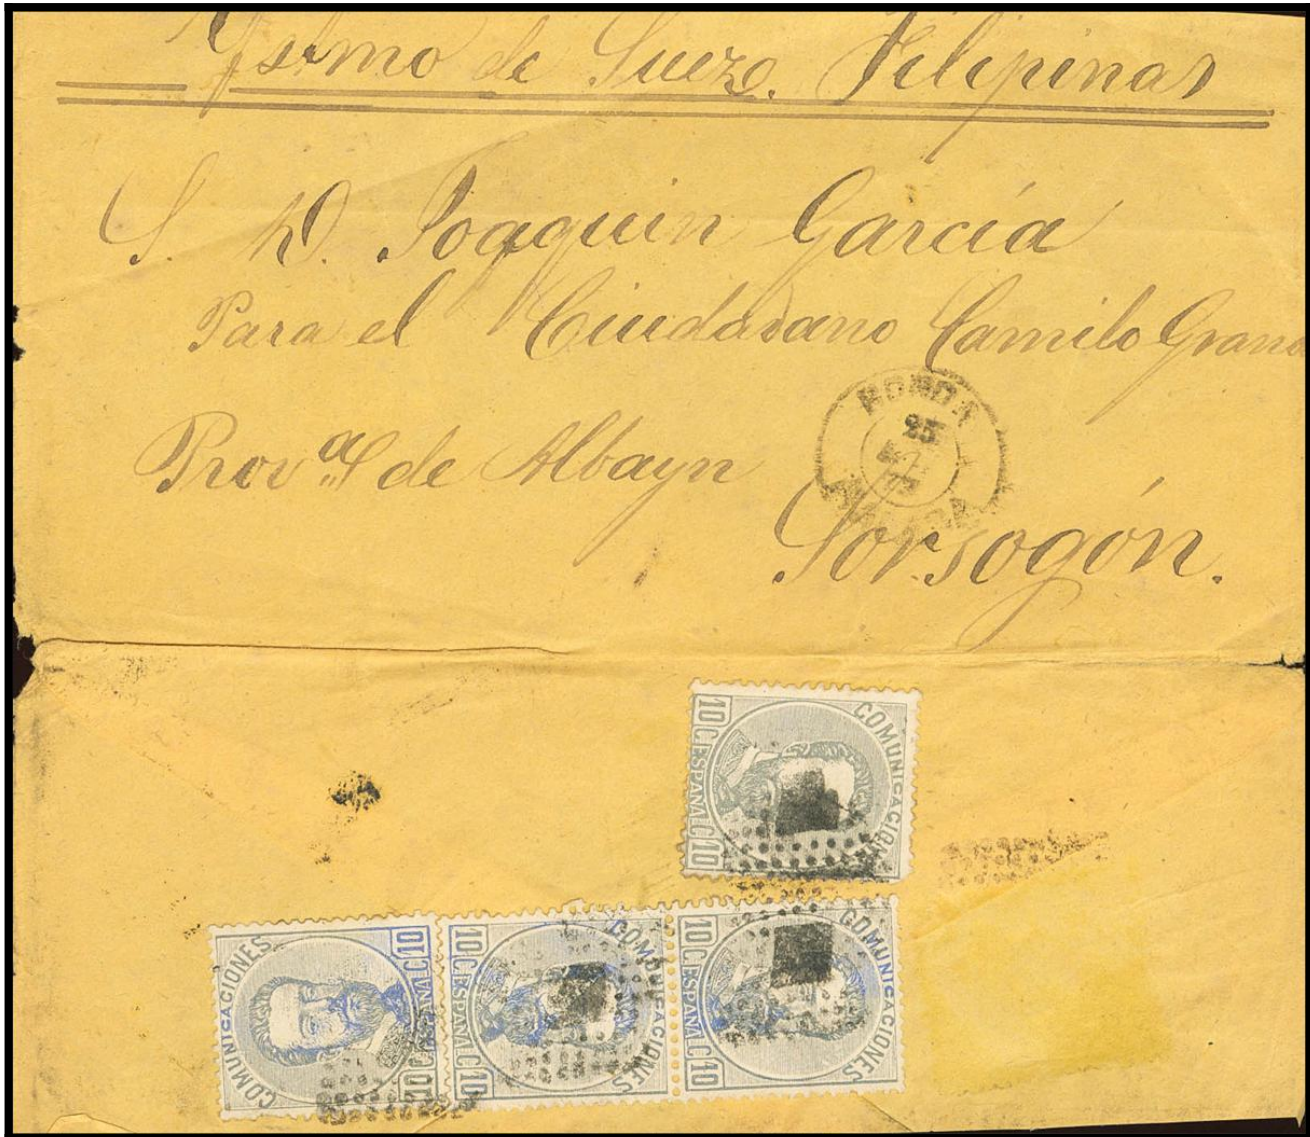 Ystmo de Suezo. Filipinas
S. D. Joaquin García
Para el Ciudadano Camilo
Prov.ª de Albayn
RONDA
25
Sorsogón.
COMUNICACIONES
10 C ESPAÑA C 10
COMUNICACIONES
10 C ESPAÑA C 10
COMUNICACIONES
10 C ESPAÑA C 10
COMUNICACIONES
10 C ESPAÑA C 10